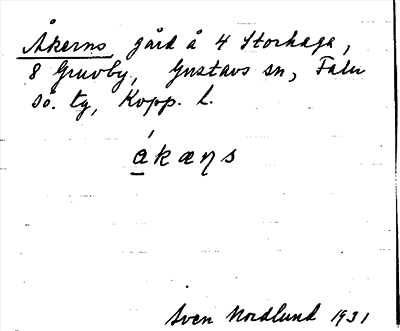 Åkerns, gård å 4 Storhaga,
8 Gruvby, Gustavs sn, Falu
sö. tg, Kopp. l.
á̱kæƞs
Sven Nordlund 1931